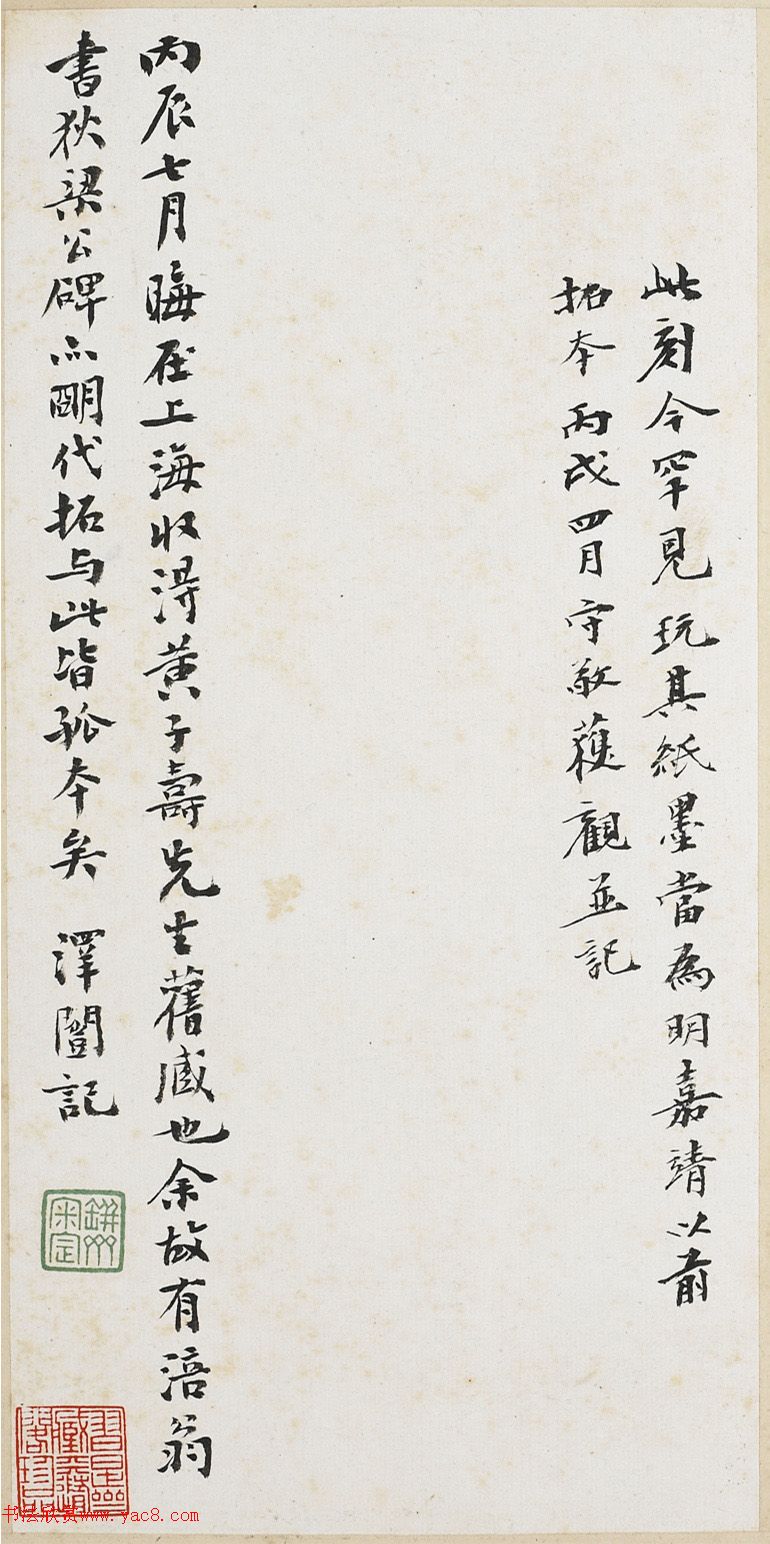 此刻今罕見玩其紙墨當為明嘉靖以前
拓本丙戌四月守敬獲觀並記
丙辰七月晦在上海收得黃子壽先生舊藏也余故有涪翁
書狄梁公碑亦明代拓与此皆孤本矣 澤闓記
书法欣赏www.yac8.com